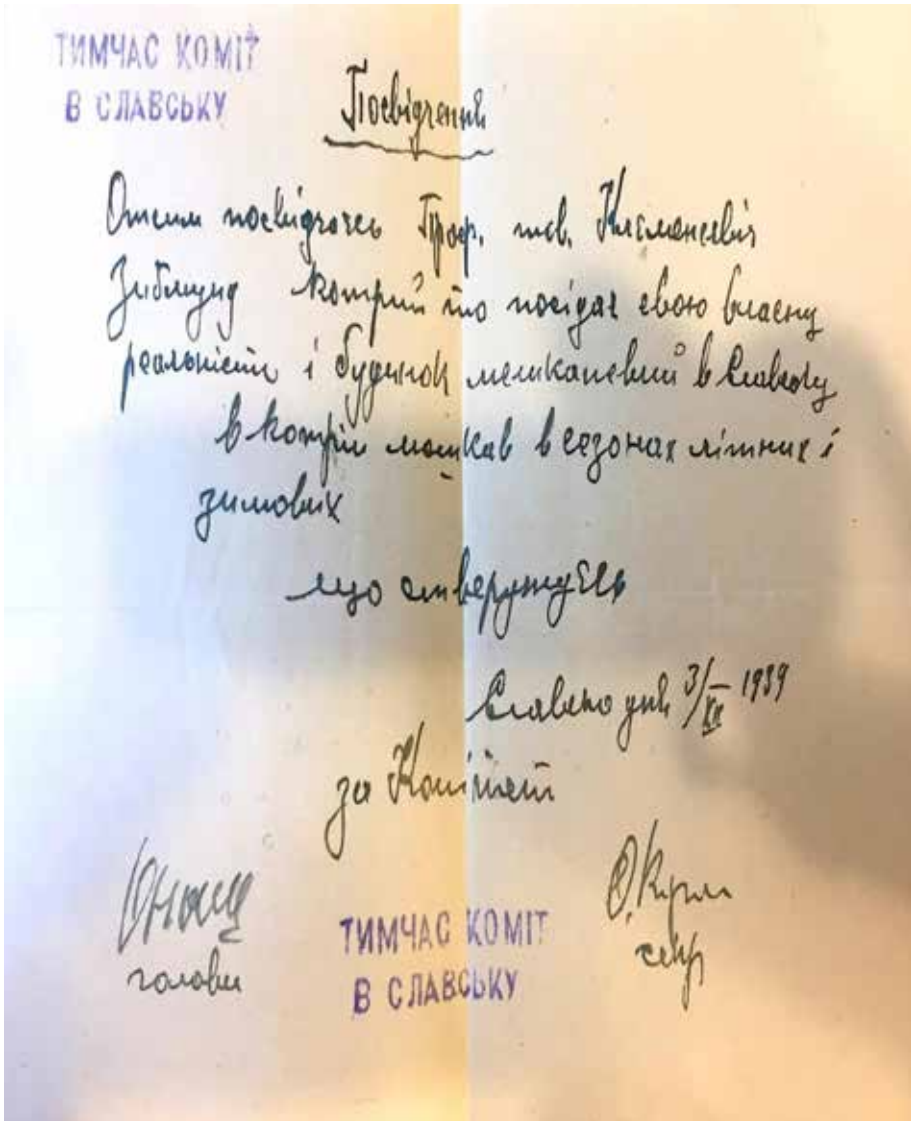 ТИМЧАС КОМІТ
В СЛАВСЬКУ
Посвідчення
Отсим посвідчаєсь Проф. тов. Клєменсевіч
Зиґмунд котрий то посідає свою власну
реальність і будинок мешканевий в Славску
в котрім мешкав в сезонах літних і
зимових
що стверджуєсь
Славско дня 3/XII 1939
за Комітет
голова
секр
ТИМЧАС КОМІТ
В СЛАВСЬКУ